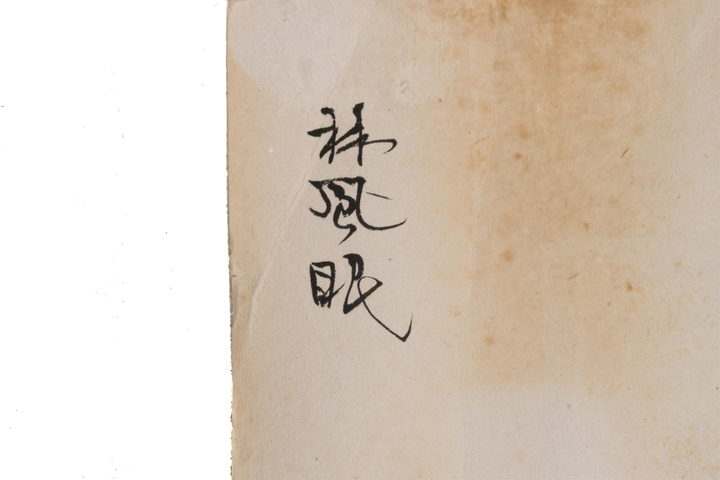 林風眠